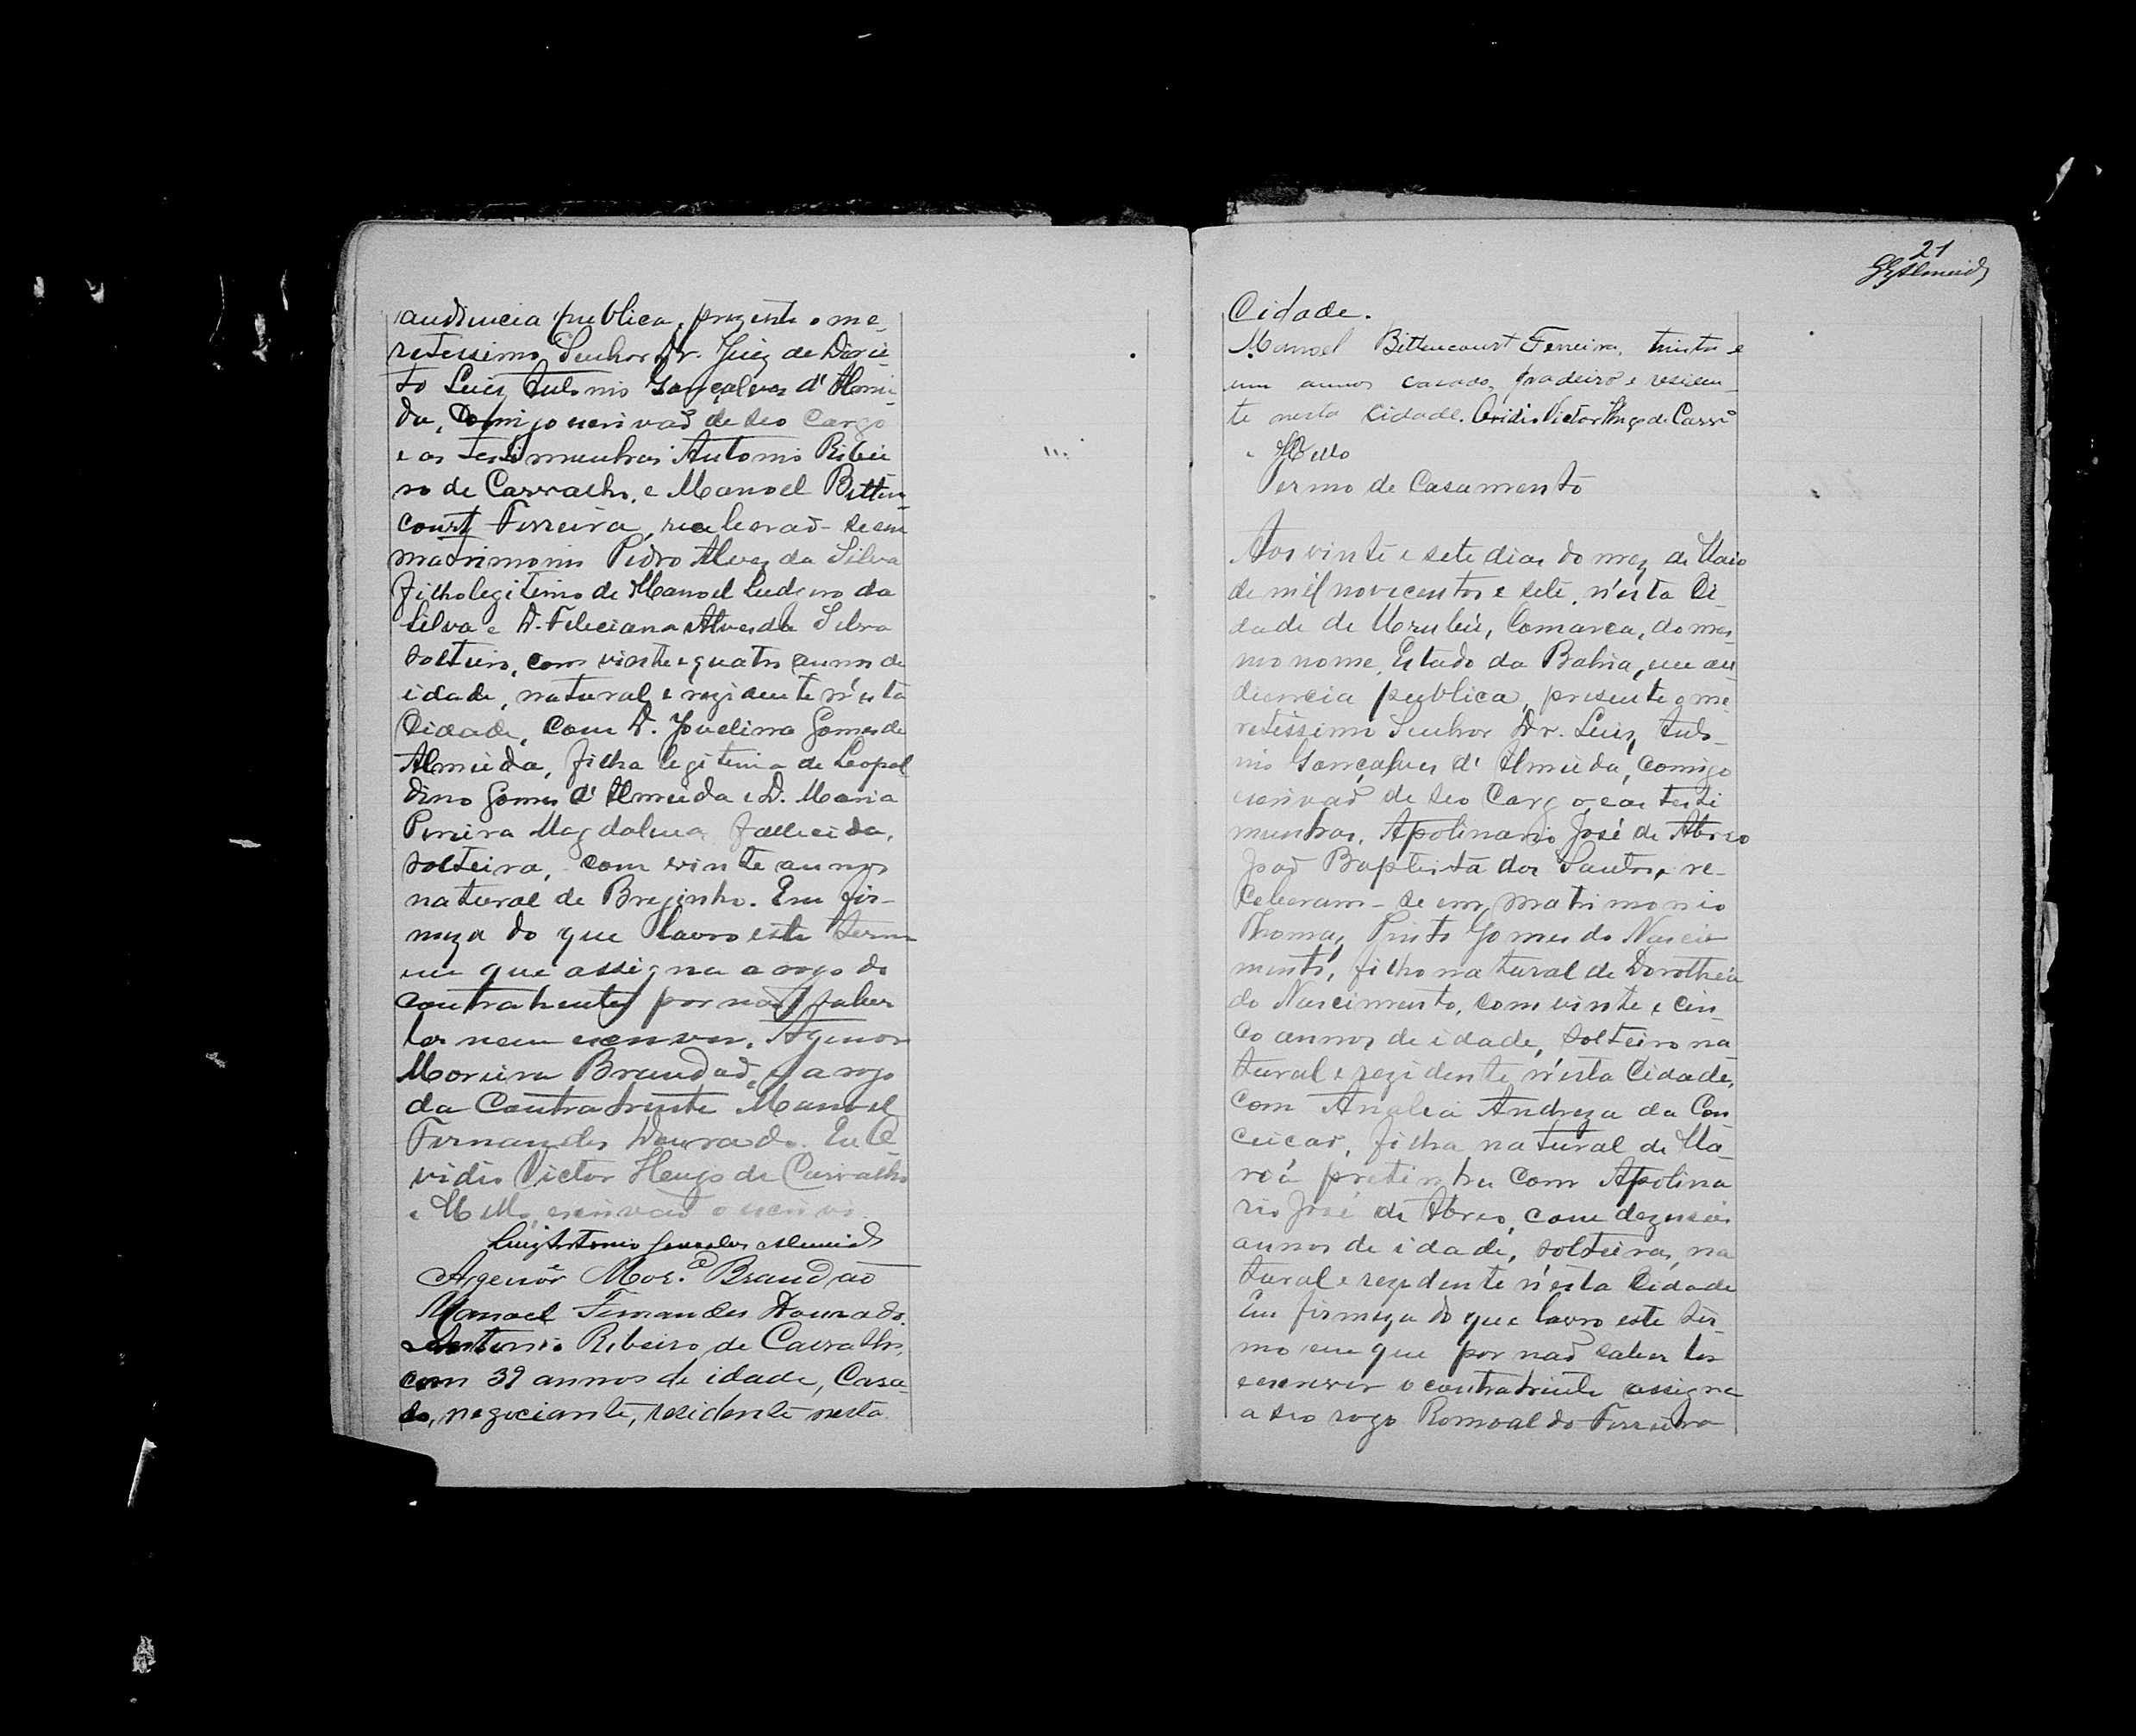 audiencia publica, prezente o me
retessimo Senhor Dr. Juiz de Direi
to Luiz Antonio Gonçalves d'Almei
da, Comigo escrivaõ de seo Cargo
e as testimunhas Antonio Ribei
ro de Carvalho, e Manoel Bitten
court Ferreira, receberaõ-se em
matrimonio Pedro Alves da Silva
filho legitimo de Manoel Ludgero da
Silva e D. Feleciana Alves da Silva
solteiro, com vinte e quatro annos de
idade, natural e rezidente n'esta
Cidade, com D. Jovelina Gomes de
Almeida, filha legitima de Leopol
dino Gomes d'Almeida e D. Maria
Pereira Magdalena fallecida,
solteira, com vinte annos
natural de Brejinho. Em fir-
meza do que lavro este termo
em que assigna a rogo do
contrahentes por naõ saber
ler nem escrever, Agenor
Moreira Brandaõ, e a rogo
da Contrahente Manoel
Fernandes Dourado. Eu O
vidio Victor Hugo de Carvalho
e Mello, escrivaõ o escrevo.
Luiz Antonio Gonçalves Almeida
Agenôr Mor.ª Brandaõ
Manoel Fernandes Dourado.
Antonio Ribeiro de Carvalho,
com 39 annos de idade, Casa-
do, negociante, residente nesta
21
GGAlmeida
Cidade.
Manoel Bittencourt Ferreira, trinta e
um annos casado, padeiro e residen-
te nesta Cidade. Ovidio Victor Hugo de Carvº
e Mello
Termo de Casamento
Aos vinte e sete dias do mez de Maio
de mil novecentos e sete, n'esta Ci-
dade de Urubú, Comarca, do mes
mo nome, Estado da Bahia, em au
diencia publica, presente o me
retissimo Senhor Dr. Luiz Anto-
nio Gonçalves d'Almeida, comigo
escrivaõ de seo Cargo e as testi
munhas, Apolinario José de Abreo
Joaõ Baptista dos Santos, re-
ceberam-se em matrimonio
Thomaz Pinto Gomes do Nasci
mento, filho natural de Dorothéa
do Nascimento, com vinte e cin-
co annos de idade, solteiro na
tural e rezidente n'esta Cidade,
com Analia Andreza da Con
ceicaõ, filha natural de Ma-
ria pretinha com Apolina
rio José de Abreo, com dezeseis
annos de idade, solteira, na
tural e rezidente n'esta Cidade
Em firmeza do que lavro este ter-
mo em que por naõ saber ler
e escrever o contrahente assigna
a seo rogo Romoaldo Ferreira